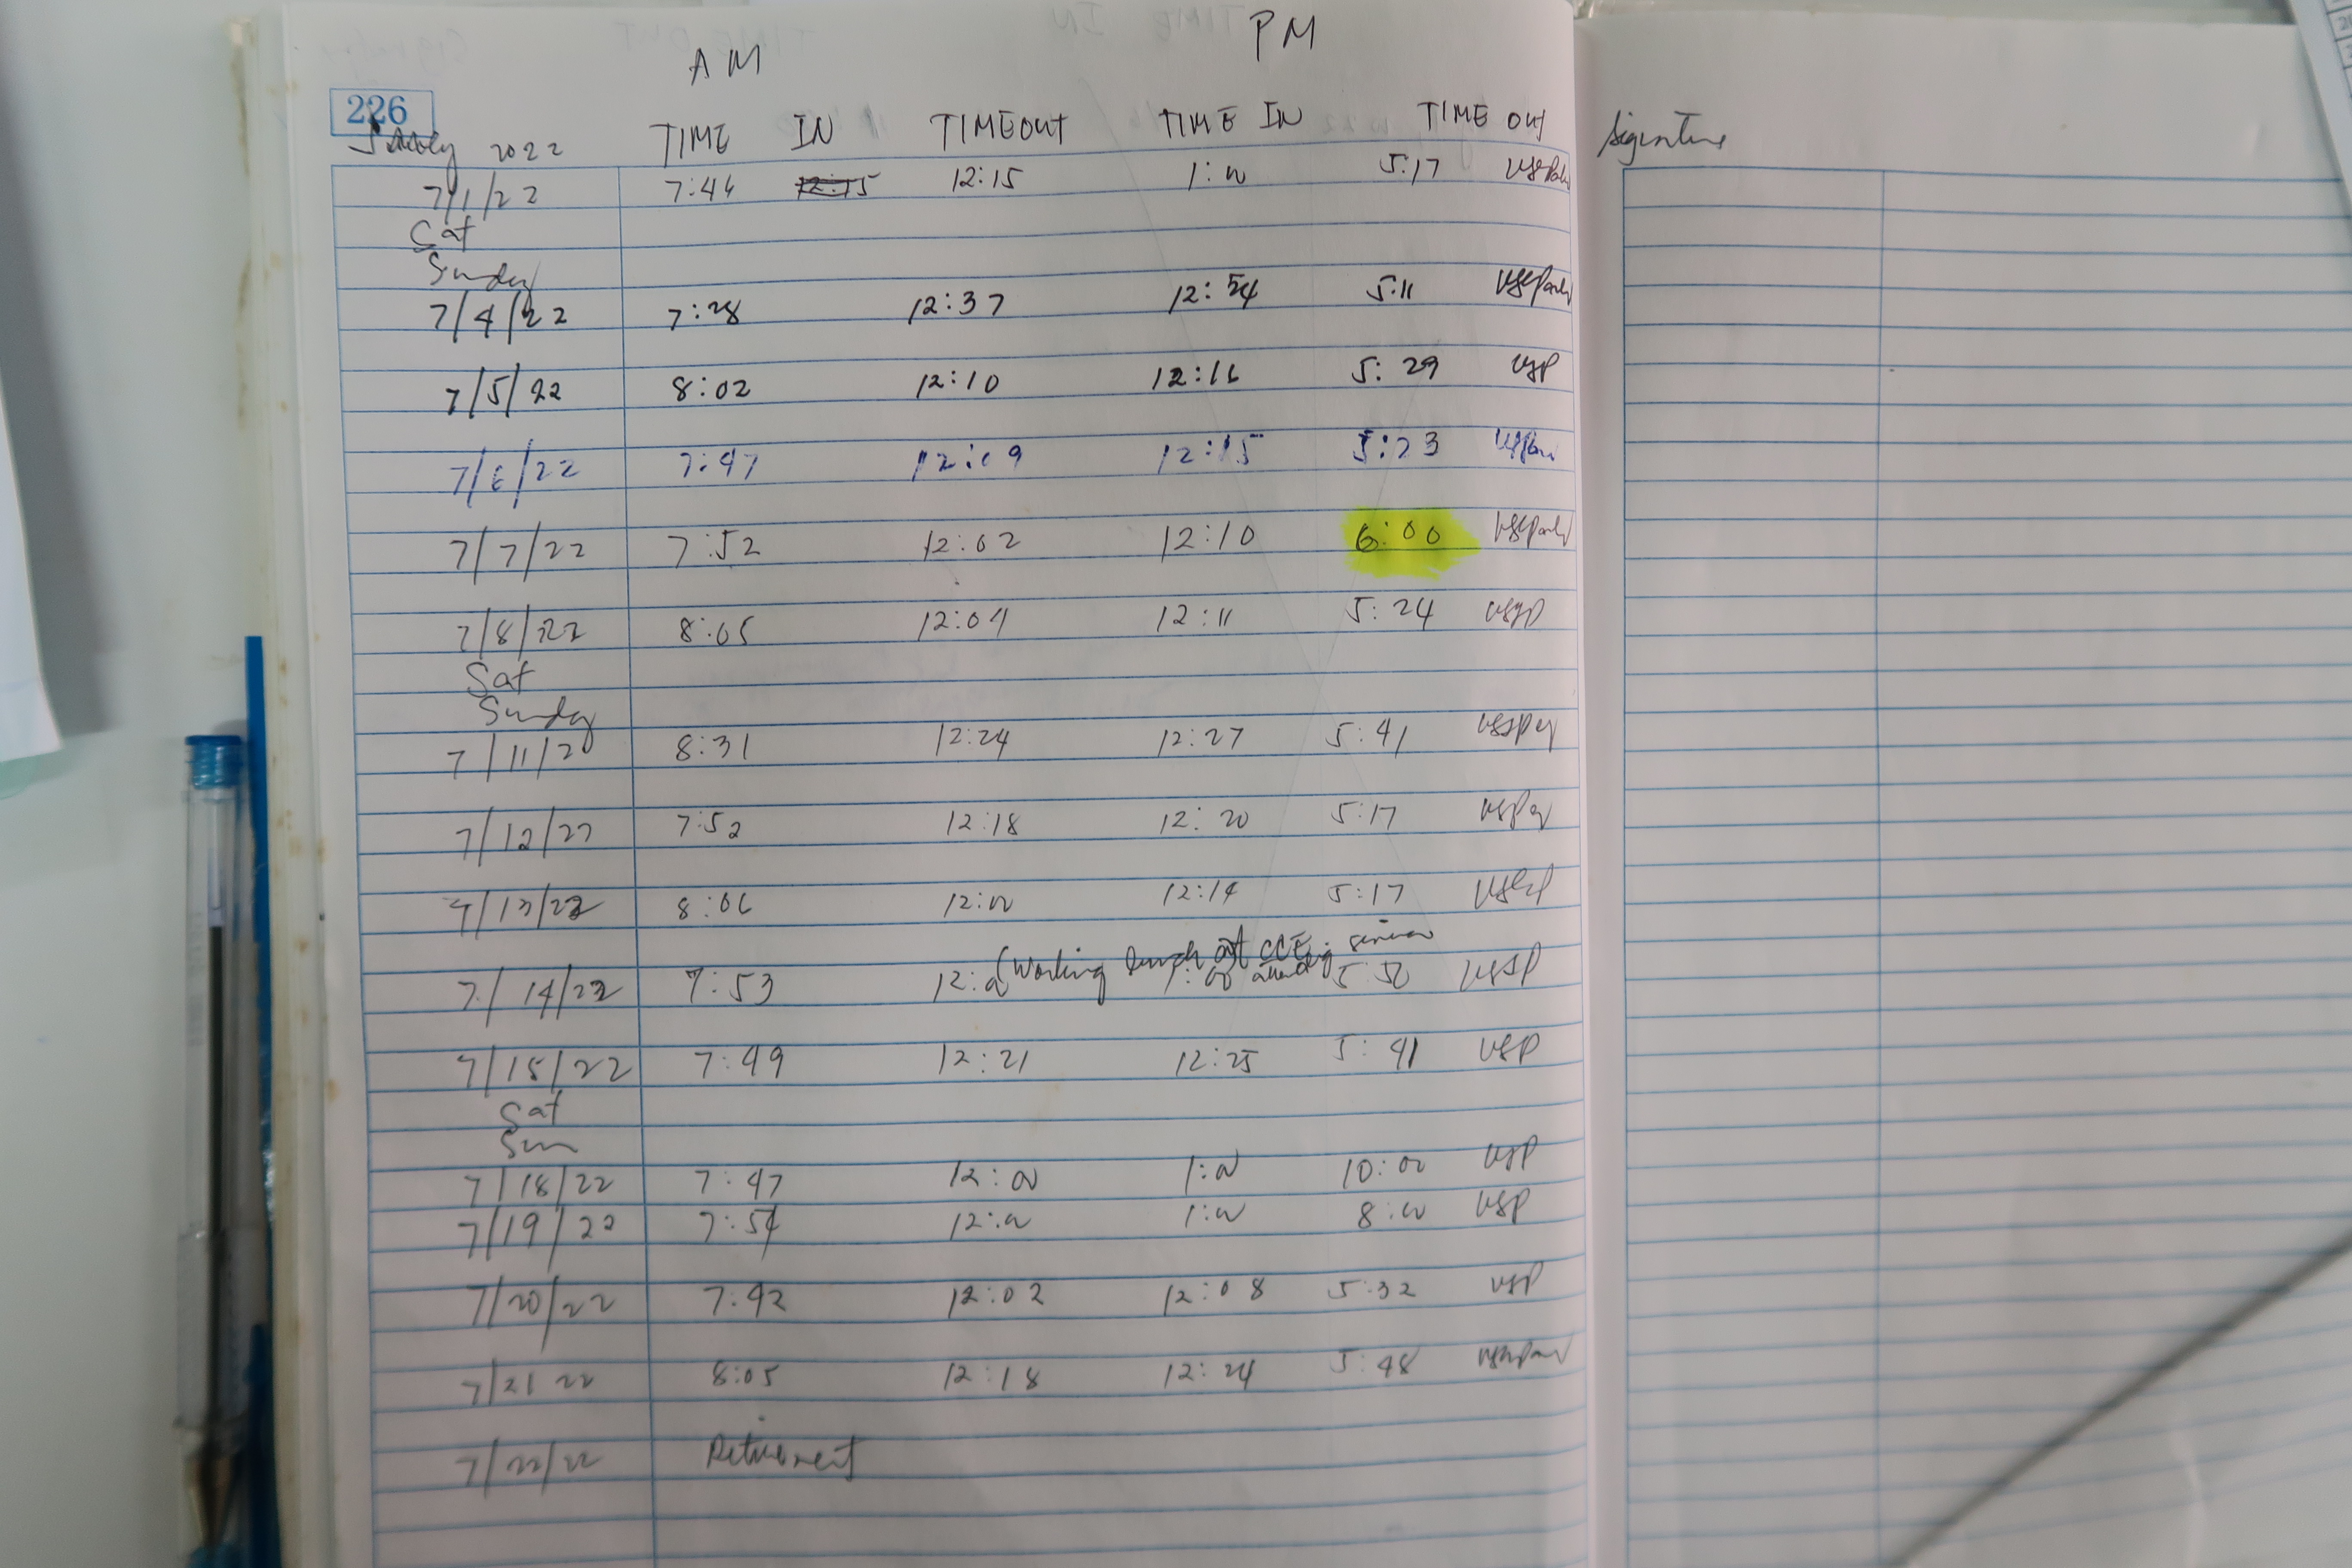 AM PM
226
2022 TIME IN TIMEOUT TIME IN TIME OUT Signature
7/1/22 7:46 12:15 12:15 1:00 5:17
Sat
Sunday
7/4/22 7:28 12:37 12:54 5:11
7/5/22 8:02 12:10 12:16 5:29 VSP
7/6/22 7:47 12:09 12:15 5:23
7/7/22 7:52 12:02 12:10 6:00
7/8/22 8:05 12:04 12:11 5:24
Sat
Sunday
7/11/2 8:31 12:24 12:27 5:41
7/12/22 7:52 12:18 12:20 5:17
7/13/22 8:06 12:00 12:14 5:17
(Working lunch at CCE attending seminar
7/14/22 7:53 12:00 1:00 5:50
7/15/22 7:49 12:21 12:25 5:41 VSP
Sat
Sun
7/18/22 7:47 12:00 1:00 10:00 VSP
7/19/22 7:54 12:00 1:00 8:00 VSP
7/20/22 7:42 12:02 12:08 5:32 VSP
7/21 22 8:05 12:18 12:24 5:48
7/22/22 Retirement